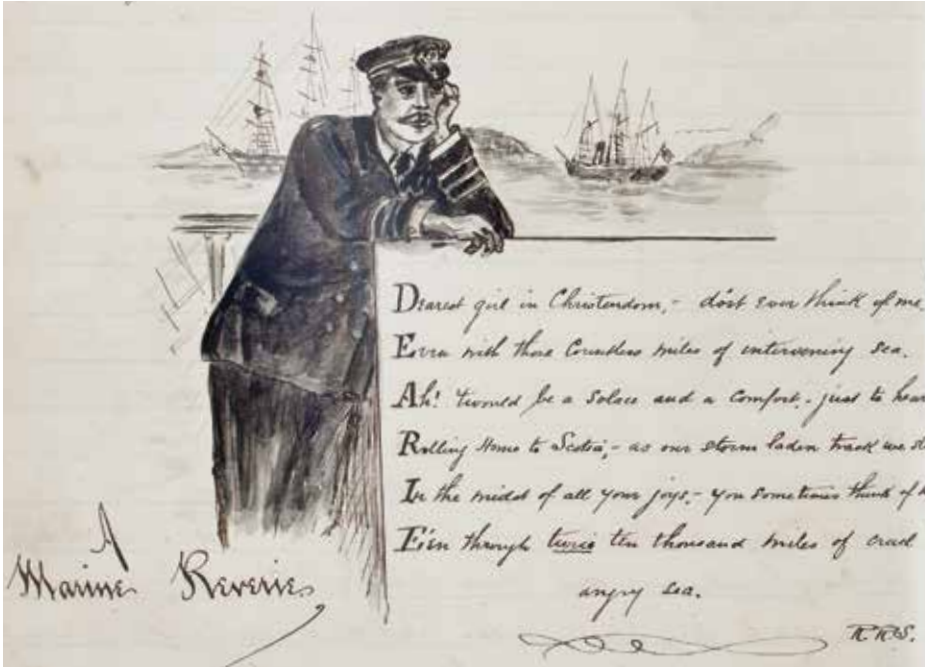 Dearest girl in Christendom, - do'st ever think of me,
Even with those Countless miles of intervening sea.
Ah! twould be a solace and a comfort, - just to hear
Rolling Home to Scotia, - as our storm laden track we
In the midst of all your joys, - you sometimes think of
E'en through twice ten thousand miles of cruel
angry sea.
R.R.S.
A
Marine Reverie